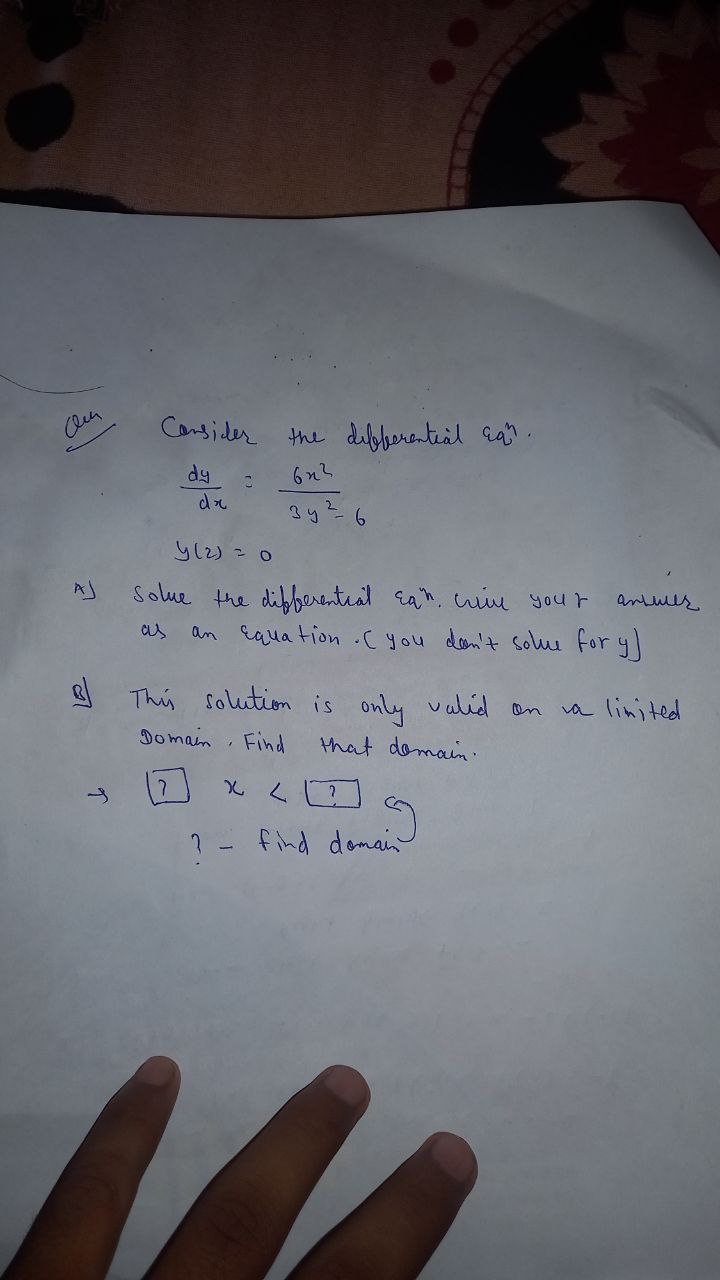 Ques Consider the differential eqⁿ.
dy/dx = 6x²/3y²-6
y(2) = 0
A) Solve the differential Eqⁿ. your answer
as an Equation. ( you don't solve for y)
B) This solution is only valid on a limited
Domain. Find that domain.
→ [?] x < [?]
? - find domain